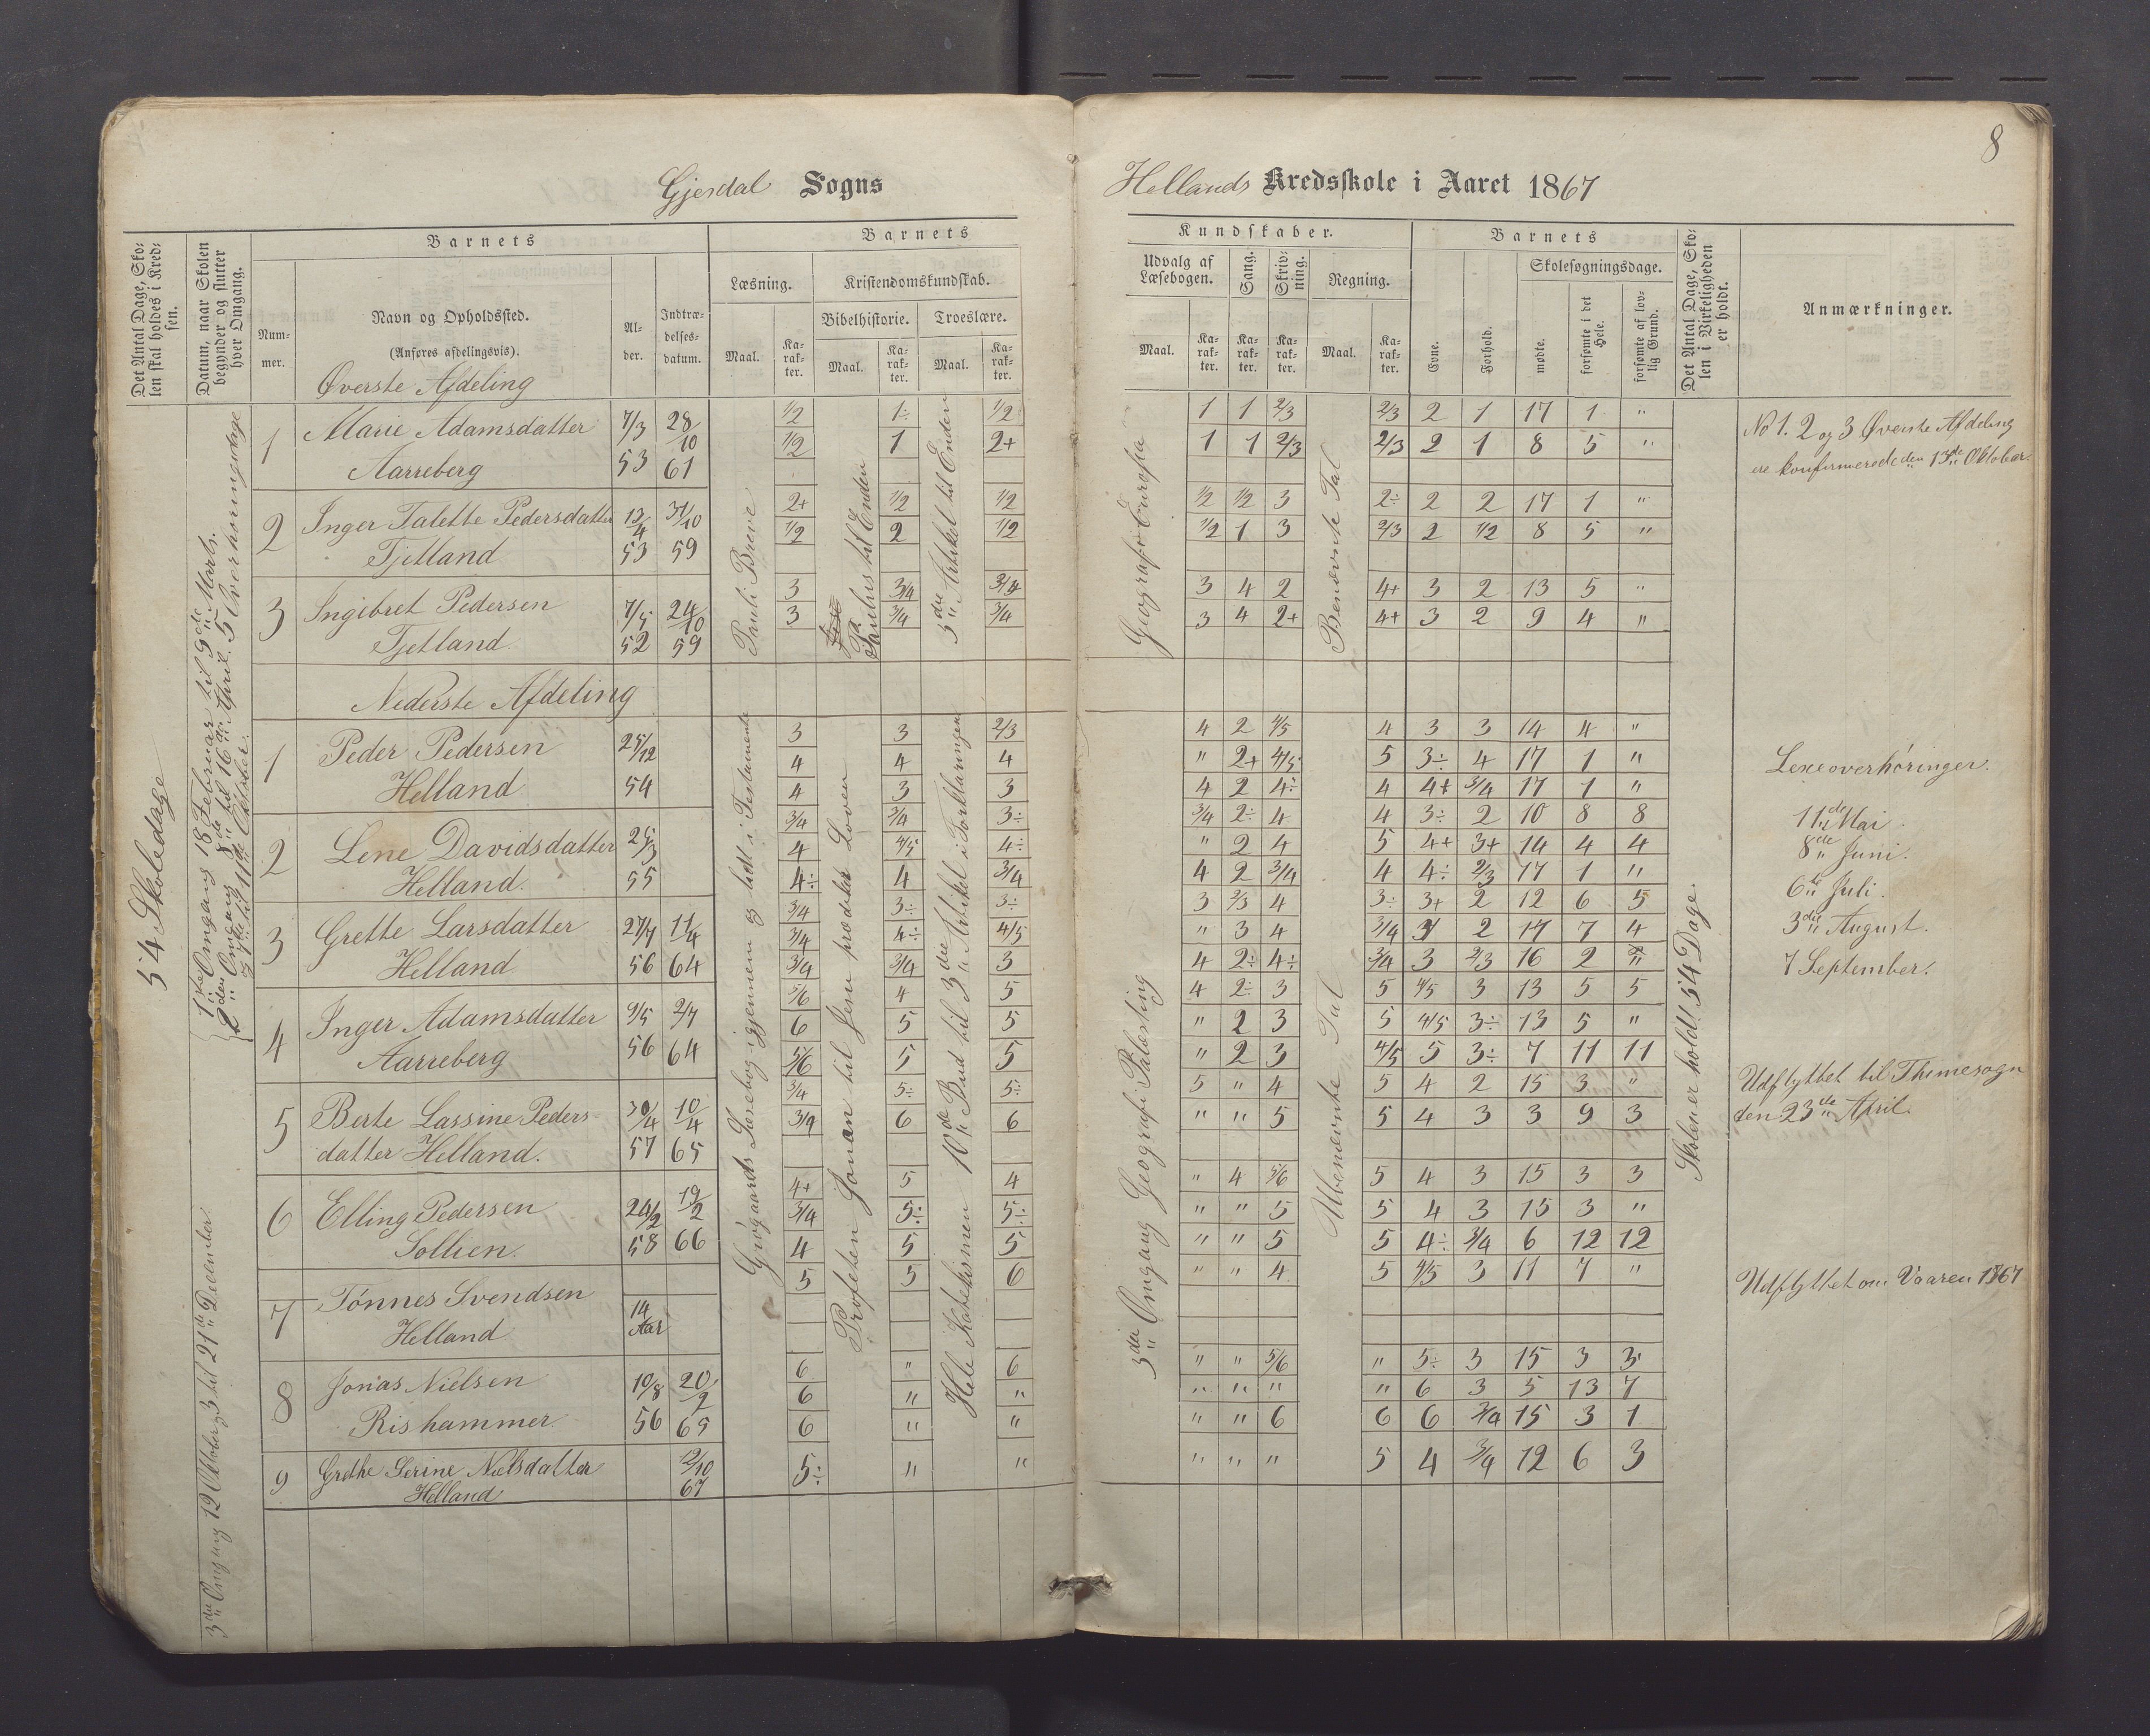 8
Gjesdal Sogns
Hellands Kredsskole i Aaret 1867
Det Antal Dage, Skolen skal holdes i Kredsen.
Datum, naar Skolen begynder og slutter hver Omgang.
Barnets
Nummer.
Navn og Opholdssted.
(Anføres afdelingsvis).
Alder.
Indtrædelsesdatum.
Barnets
Læsning.
Kristendomskundskab.
Bibelhistorie.
Troeslære.
Maal.
Karakter.
Maal.
Karakter.
Maal.
Karakter.
Kundskaber.
Udvalg af Læsebogen.
Sang.
Skrivning.
Regning.
Maal.
Karakter.
Karakter.
Karakter.
Maal.
Karakter.
Barnets
Evne.
Forhold.
Skolesøgningsdage.
mødte.
forsømte i det Hele.
forsømte af lovlig Grund.
Det Antal Dage, Skolen i Virkeligheden er holdt.
Anmærkninger.
54 Skoledage
1ste Omgang 18 Februar til 9de Marts.
2den Omgang 8de til 16de April. 5 Overhøringsdage
og 7de til 11de Oktober.
3die Omgang 12 Oktober, 3 til 21de December
Øverste Afdeling
1 Marie Adamsdatter 7/3 28/10
Aarreberg 53 61
2 Inger Talette Pedersdatter 13/4 31/10
Tjetland 53 59
3 Ingebret Pedersen 7/5 24/10
Tjetland 52 59
Nederste Afdeling
1 Peder Pedersen 25/12
Helland 54
2 Lene Davidsdatter 25/3
Helland. 55
3 Grette Larsdatter 27/7 11/4
Helland 56 64
4 Inger Adamsdatter 9/5 2/7
Aarreberg 56 64
5 Berte Lassine Peders- 30/4 10/4
datter Helland. 57 65
6 Elling Pedersen 24/2 19/2
Sollien. 58 66
7 Tønnes Svendsen 14 Aar
Helland
8 Jonas Nielsen 10/8 20/2
Rishammer. 56 65
9 Grethe Serine Nielsdatter 12/10
Helland 67
Pauli Breve
Paulus til Enden
3die Artikel til Enden
Grøgaards Læsebog igjennem og lidt i Testamentet
Profeten Jonan til Jesu prædeker Loven
Hele Katekismen 10de Bud til 3die Artikel i Forklaringen
Geografi Europa
Benævnte Tal
3die Omgang Geografi Palesting
Ubenævnte Tal
Skolen er holdt 54 Dage.
1/2 1÷ 1/2 1 1 2/3 2/3 2 1 17 1 "
1/2 1 2+ 1 1 2/3 2/3 2 1 8 5 "
2+ 1/2 1/2 1/2 1/2 3 2÷ 2 2 17 1 "
1/2 2 1/2 1/2 1 3 2/3 2 1/2 8 5 "
3 3/4 3/4 3 4 2 4+ 3 2 13 5 "
3 3/4 3/4 3 4 2+ 4+ 3 2 9 4 "
3 3 2/3 4 2 4/5 4 3 3 14 4 "
4 4 4 " 2+ 4/5 5 3÷ 4 17 1 "
4 3 3 4 2 4÷ 4 4+ 3/4 17 1 "
3/4 3/4 3÷ 3/4 2÷ 4 4 3÷ 2 10 8 8
4 4/5 4÷ " 2 4 5 4+ 3+ 14 4 4
4÷ 4 3/4 4 2 3/4 4 4÷ 2/3 17 1 "
3/4 3÷ 3÷ 3 2/3 4 3÷ 3+ 2 12 6 5
3/4 4÷ 4/5 " 3 4 3/4 2 17 7 4
3/4 3/4 3 4 2÷ 4÷ 3/4 3 2/3 16 2 "
5/6 4 5 4 2÷ 3 5 4/5 3 13 5 5
6 5 5 " 2 3 5 4/5 3÷ 13 5 "
5/6 5 5 " 2 3 4/5 5 3÷ 7 11 11
3/4 5÷ 5÷ 5 " 4 5 4 2 15 3 "
3/4 6 6 " " 5 5 4 3 3 9 3
4+ 5 4 " 4 5/6 5 4 3 15 3 3
3/4 5÷ 5÷ " " 5 5 4 3 15 3 "
4 5 5 " " 5 5 4÷ 3/4 6 12 12
5 5 6 " " 4 5 4/5 3 11 7 "
6 " 6 " " 5/6 " 5÷ 3 15 3 3
6 " " " " " " 6 3 5 13 7
6 " " " " 6 6 6 3/4 15 3 1
5÷ " " " " " 5 4 3/4 12 6 3
No 1. 2 og 3 Øverste Afdeling
ere konfirmerede den 13de Oktober.
Lexeoverhøringer.
11de Mai.
8de Juni.
6te Juli.
3die August.
7 September.
Udflyttet til Thimesogn
den 23de April.
Udflyttet om Vaaren 1867